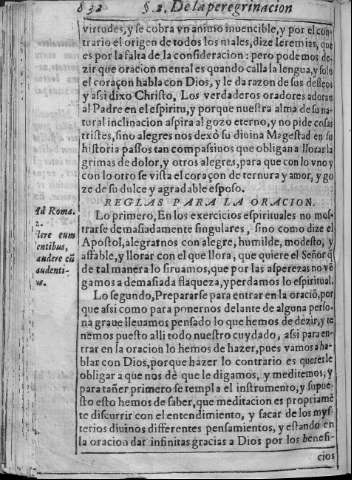 832 §. 2. De la peregrinacion
virtudes, y se cobra vn animo inuencible, y por el con-
trario el origen de todos los males, dize Ieremias, que
es por la falta de la consideracion: pero podemos de-
zir que oracion mental es quando calla la lengua, y solo
el coraçon habla con Dios, y le da razon de sus desseos
y assi dixo Christo, Los verdaderos oradores adoran
al Padre en el espiritu, y porque nuestra alma de su na-
tural inclinacion aspira al gozo eterno, y no pide cosas
tristes, sino alegres nos dexó su diuina Magestad en su
historia passos tan compassiuos que obligan a llorar la
grimas de dolor, y otros alegres, para que con lo vno y
con lo otro se vista el coraçon de ternura y amor, y go
ze de su dulce y agradable esposo.
REGLAS PARA LA ORACION.
Lo primero, En los exercicios espirituales no mos-
trarse demasiadamente singulares, sino como dize el
Apostol, alegrarnos con alegre, humilde, modesto, y
affable, y llorar con el que llora, que quiere el Señor q̃
de tal manera lo siruamos, que por las asperezas no vē
gamos a demasiada flaqueza, y perdamos lo espiritual.
Lo segundo, Prepararse para entrar en la oraciō, por
que assi como para ponernos delante de alguna perso-
na graue lleuamos pensado lo que hemos de dezir, y te
nemos puesto alli todo nuestro cuydado, assi para en-
trar en la oracion lo hemos de hazer, pues vamos a ha-
blar con Dios, porque hazer lo contrario es quererle
obligar a que nos dè que le digamos, y meditemos, y
para tañer primero se templa el instrumento, y supue-
sto esto hemos de saber, que meditacion es propriamē
te discurrir con el entendimiento, y sacar de los mys-
terios diuinos differentes pensamientos, y estando en
la oracion dar infinitas gracias a Dios por los benefi-
cios
Ad Roma.
2.
flere cum
entibus,
audere cū
audenti-
us.